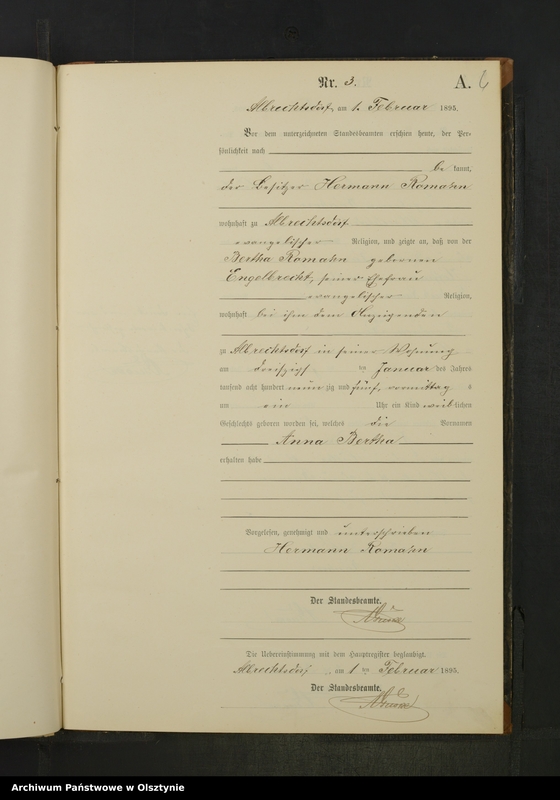 Nr. 3. A. 6
Albrechtsdorf am 1. Februar 1895.
Vor dem unterzeichneten Standesbeamten erschien heute, der Per-
sönlichkeit nach
be kannt,
der Besitzer Hermann Romahn
wohnhaft zu Albrechtsdorf
evangelischer Religion, und zeigte an, daß von der
Bertha Romahn gebornen
Engelbrecht, seiner Ehefrau
evangelischer Religion,
wohnhaft bei ihm dem Anzeigenden
zu Albrechtsdorf in seiner Wohnung
am dreißigst en Januar des Jahres
tausend acht hundert neun zig und fünf, vormittag s
um ein Uhr ein Kind weib lichen
Geschlechts geboren worden sei, welches die Vornamen
Anna Bertha
erhalten habe
Vorgelesen, genehmigt und unterschrieben
Hermann Romahn
Der Standesbeamte.
Die Uebereinstimmung mit dem Hauptregister beglaubigt.
Albrechtsdorf, am 1 ten Februar 1895.
Der Standesbeamte.
Archiwum Państwowe w Olsztynie